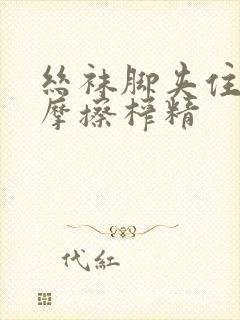 絲袜脚夹住
摩擦榨精
代紅